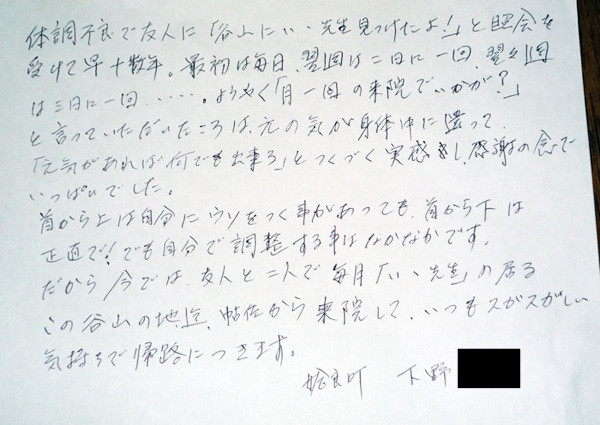 体調不良で友人に「谷山にいい先生見つけたよ!」と照会を
受けて早十数年。最初は毎日、翌週は二日に一回、翌々週
は三日に一回‥‥‥。ようやく「月一回の来院でいかが?」
と言っていただいたころは、元の気が身体中に還って、
「元気があれば何でも出来る」とつくづく実感し、感謝の念で
いっぱいでした。
首から上は自分にウソをつく事があっても、首から下は
正直で!でも自分で調整する事はなかなかです。
だから今では、友人と二人で毎月「いい先生」の居る
この谷山の地迄、帖佐から来院して、いつもスガスガしい
気持ちで帰路につきます。
姶良町 下野